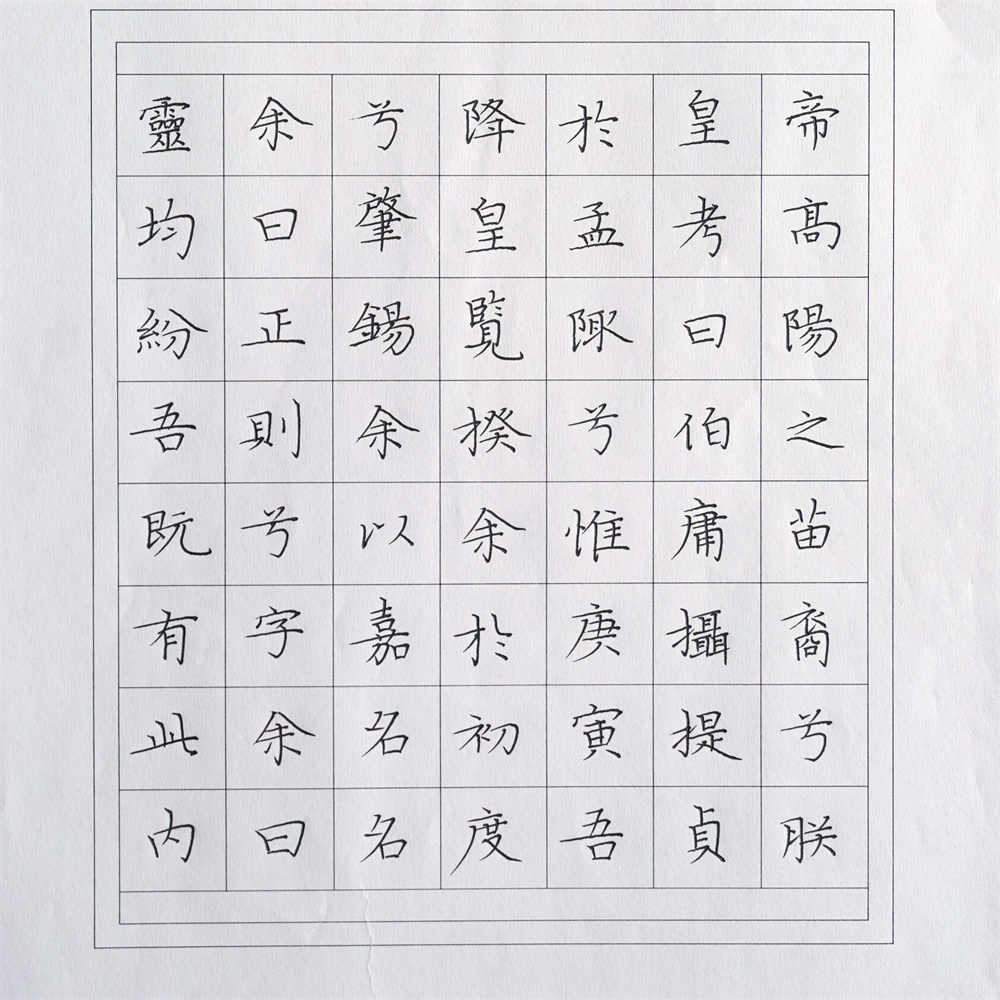 帝髙陽之苗裔兮朕
皇考曰伯庸攝提貞
於孟陬兮惟庚寅吾
降皇覽揆余於初度
兮肇錫余以嘉名名
余曰正則兮字余曰
靈均紛吾既有此内